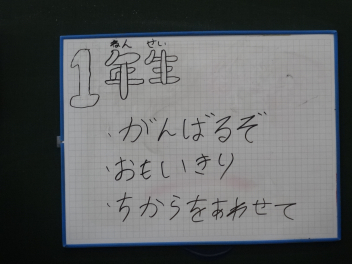 ねん せい
1年生
・がんばるぞ
・おもいきり
・ちからをあわせて